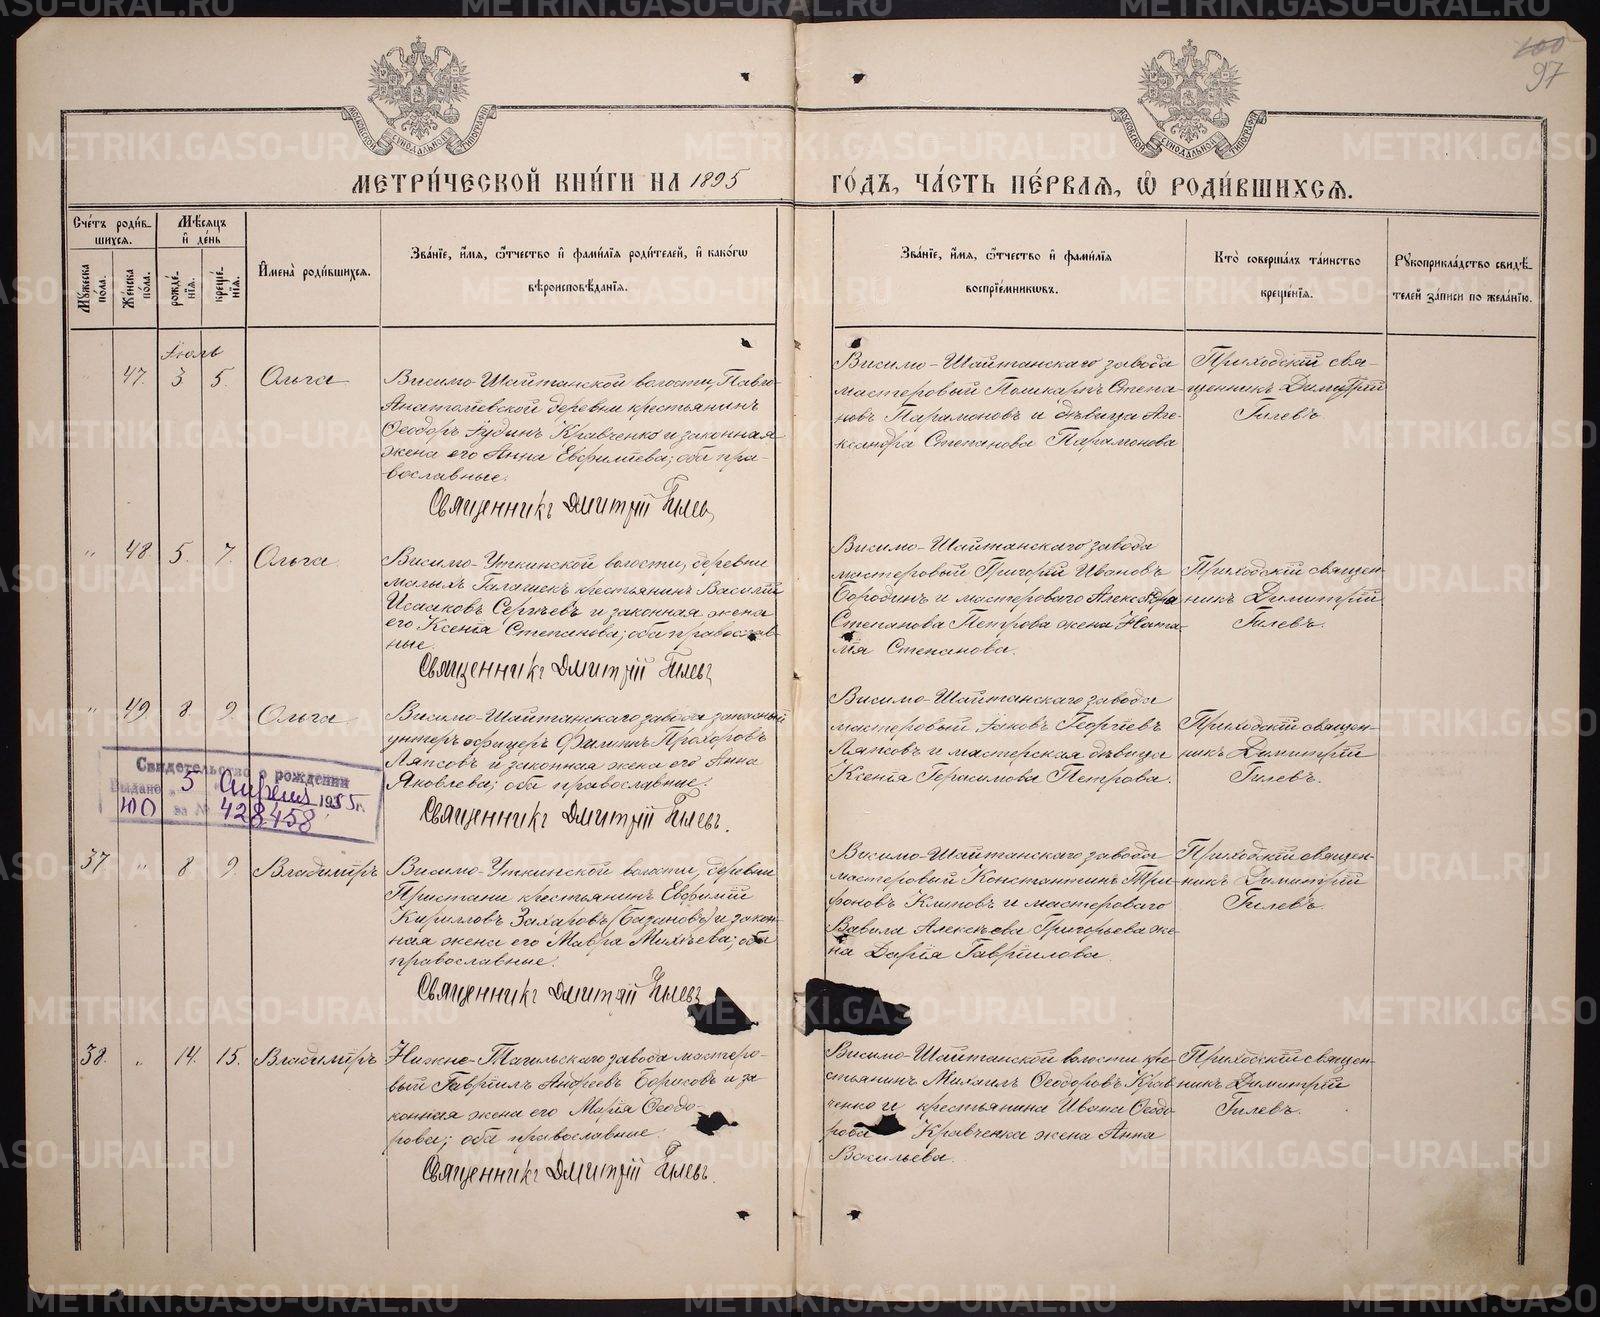 100
97
МОСКОВСКОЙ СѴНОДАЛЬНОЙ ТИПОГРАФІИ
МОСКОВСКОЙ СѴНОДАЛЬНОЙ ТИПОГРАФІИ
МЕТРИ́ЧЕСКОЙ КНИ́ГИ НА 1895 ГО́ДЪ, ЧА́СТЬ ПЕ́РВАЯ, Ѡ РОДИ́ВШИХСЯ.
Сче́тъ роди́в-
шихся.
Мѣ́сяцъ
и де́нь
Му́жеска
по́ла.
Же́нска
по́ла.
рожде́-
нїя.
креще́-
нїя.
Имена̀ роди́вшихся.
Зва́нїе, и́мя, ѻ́тчество и фами́лїя роди́телей, и како́гѡ
вѣроисповѣ́данїя.
Зва́нїе, и́мя, ѻ́тчество и фами́лїя
воспрїе́мниковъ.
Кто̀ соверша́лъ та́инство
креще́нїя.
Рукоприкла́дство свидѣ́-
телей за́писи по жела́нїю.
Іюль
47. 3 5. Ольга
Висимо-Шайтанской волости, Павло-
Анатолѣевской деревни крестьянинъ
Ѳеодоръ Іудинъ Кравченко и законная
жена его Анна Евфимѣева; оба пра-
вославные.
Священникъ Дмитрій Гилевъ
Висимо-Шайтанскаго завода
мастеровый Поликарпъ Степа-
новъ Парамоновъ и дѣвица Але-
ксандра Степанова Парамонова
Приходскій свя-
щенникъ Димитрій
Гилевъ
" 48. 5. 7. Ольга.
Висимо-Уткинской волости, деревни
малыхъ Галашекъ крестьянинъ Василій
Исааковъ Сергѣевъ и законная жена
его Ксенія Степанова; оба православ-
ные.
Священникъ Дмитрій Гилевъ
Висимо-Шайтанскаго завода
мастеровый Григорій Ивановъ
Бородинъ и мастероваго Александра
Степанова Петрова жена Ната-
лія Степанова.
Приходскій священ-
никъ Димитрій
Гилевъ.
" 49 8. 9. Ольга
Висимо-Шайтанскаго завода запасный
унтеръ офицеръ Филиппъ Прохоровъ
Ляпсовъ и законная жена его Анна
Яковлева; оба православные.
Священникъ Дмитрій Гилевъ.
Висимо-Шайтанскаго завода
мастеровый Іаковъ Георгіевъ
Ляпсовъ и мастерская дѣвица
Ксенія Герасимова Петрова.
Приходскій священ-
никъ Димитрій
Гилевъ.
Свидетельство о рождении
Выдано „ 5 Апреля 1955 г.
ЮО за № 428458
37 " 8 9. Владиміръ
Висимо-Уткинской волости, деревни
Пристани крестьянинъ Евфимій
Кирилловъ Захаровъ (Базановъ) и закон-
ная жена его Мавра Михѣева; оба
православные.
Священникъ Дмитрій Гилевъ
Висимо-Шайтанскаго завода
мастеровый Константинъ Три-
фоновъ Клиповъ и мастероваго
Вавила Алексѣева Григорьева же-
на Дарія Гавріилова.
Приходскій священ-
никъ Димитрій
Гилевъ.
38. " 14. 15. Владиміръ
Нижне-Тагильскаго завода мастеро-
вый Гавріилъ Андреевъ Борисовъ и за-
конная жена его Марія Ѳеодо-
рова; оба православные.
Священникъ Дмитрій Гилевъ.
Висимо-Шайтанской волости кре-
стьянинъ Михаилъ Ѳеодоровъ Крав-
ченко и крестьянина Ивана Ѳеодо-
рова Кравченка жена Анна
Васильева.
Приходскій священ-
никъ Димитрій
Гилевъ.
METRIKI.GASO-URAL.RU